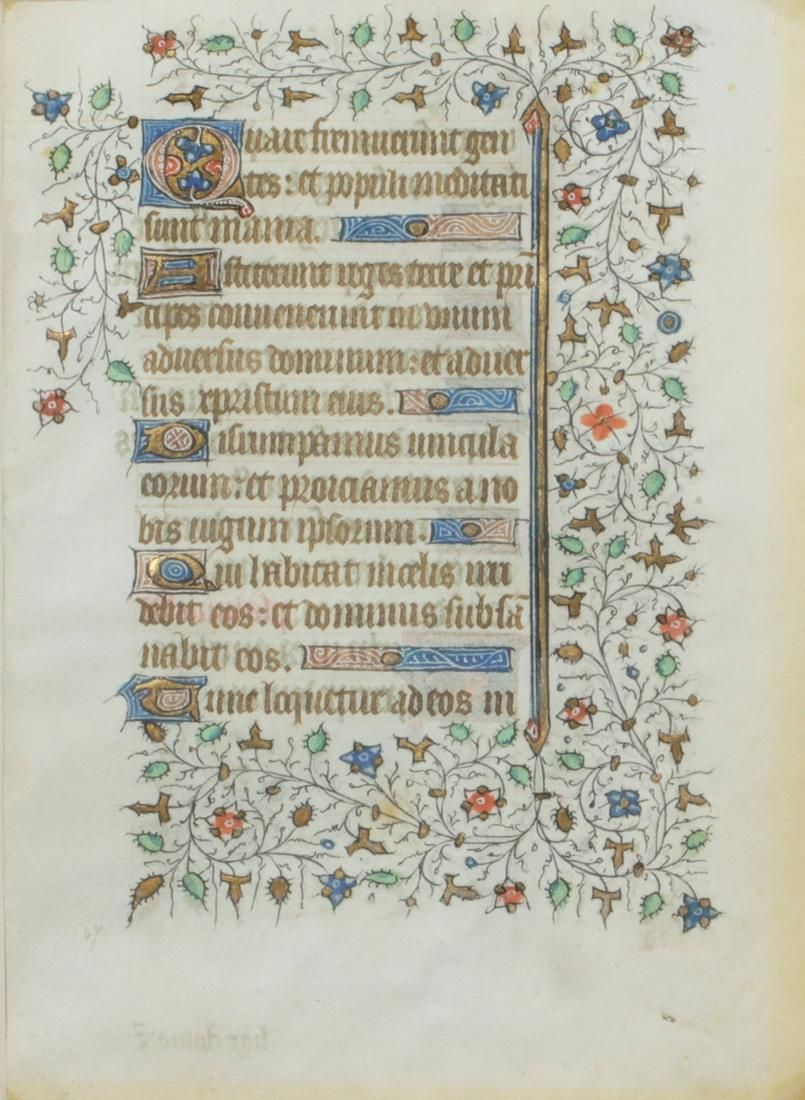 Quare fremuerunt gen
tes: et populi meditati
sunt inania.
Astiterunt reges terre et prī
cipes convenerunt in vnum
adversus dominum: et adver
sus xpristum eius.
Disrumpamus vincula
eorum: et proiciamus a no
bis iugum ipsorum.
Qui habitat in celis irri
debit eos: et dominus subsā
nabit eos.
Tunc loquetur ad eos in